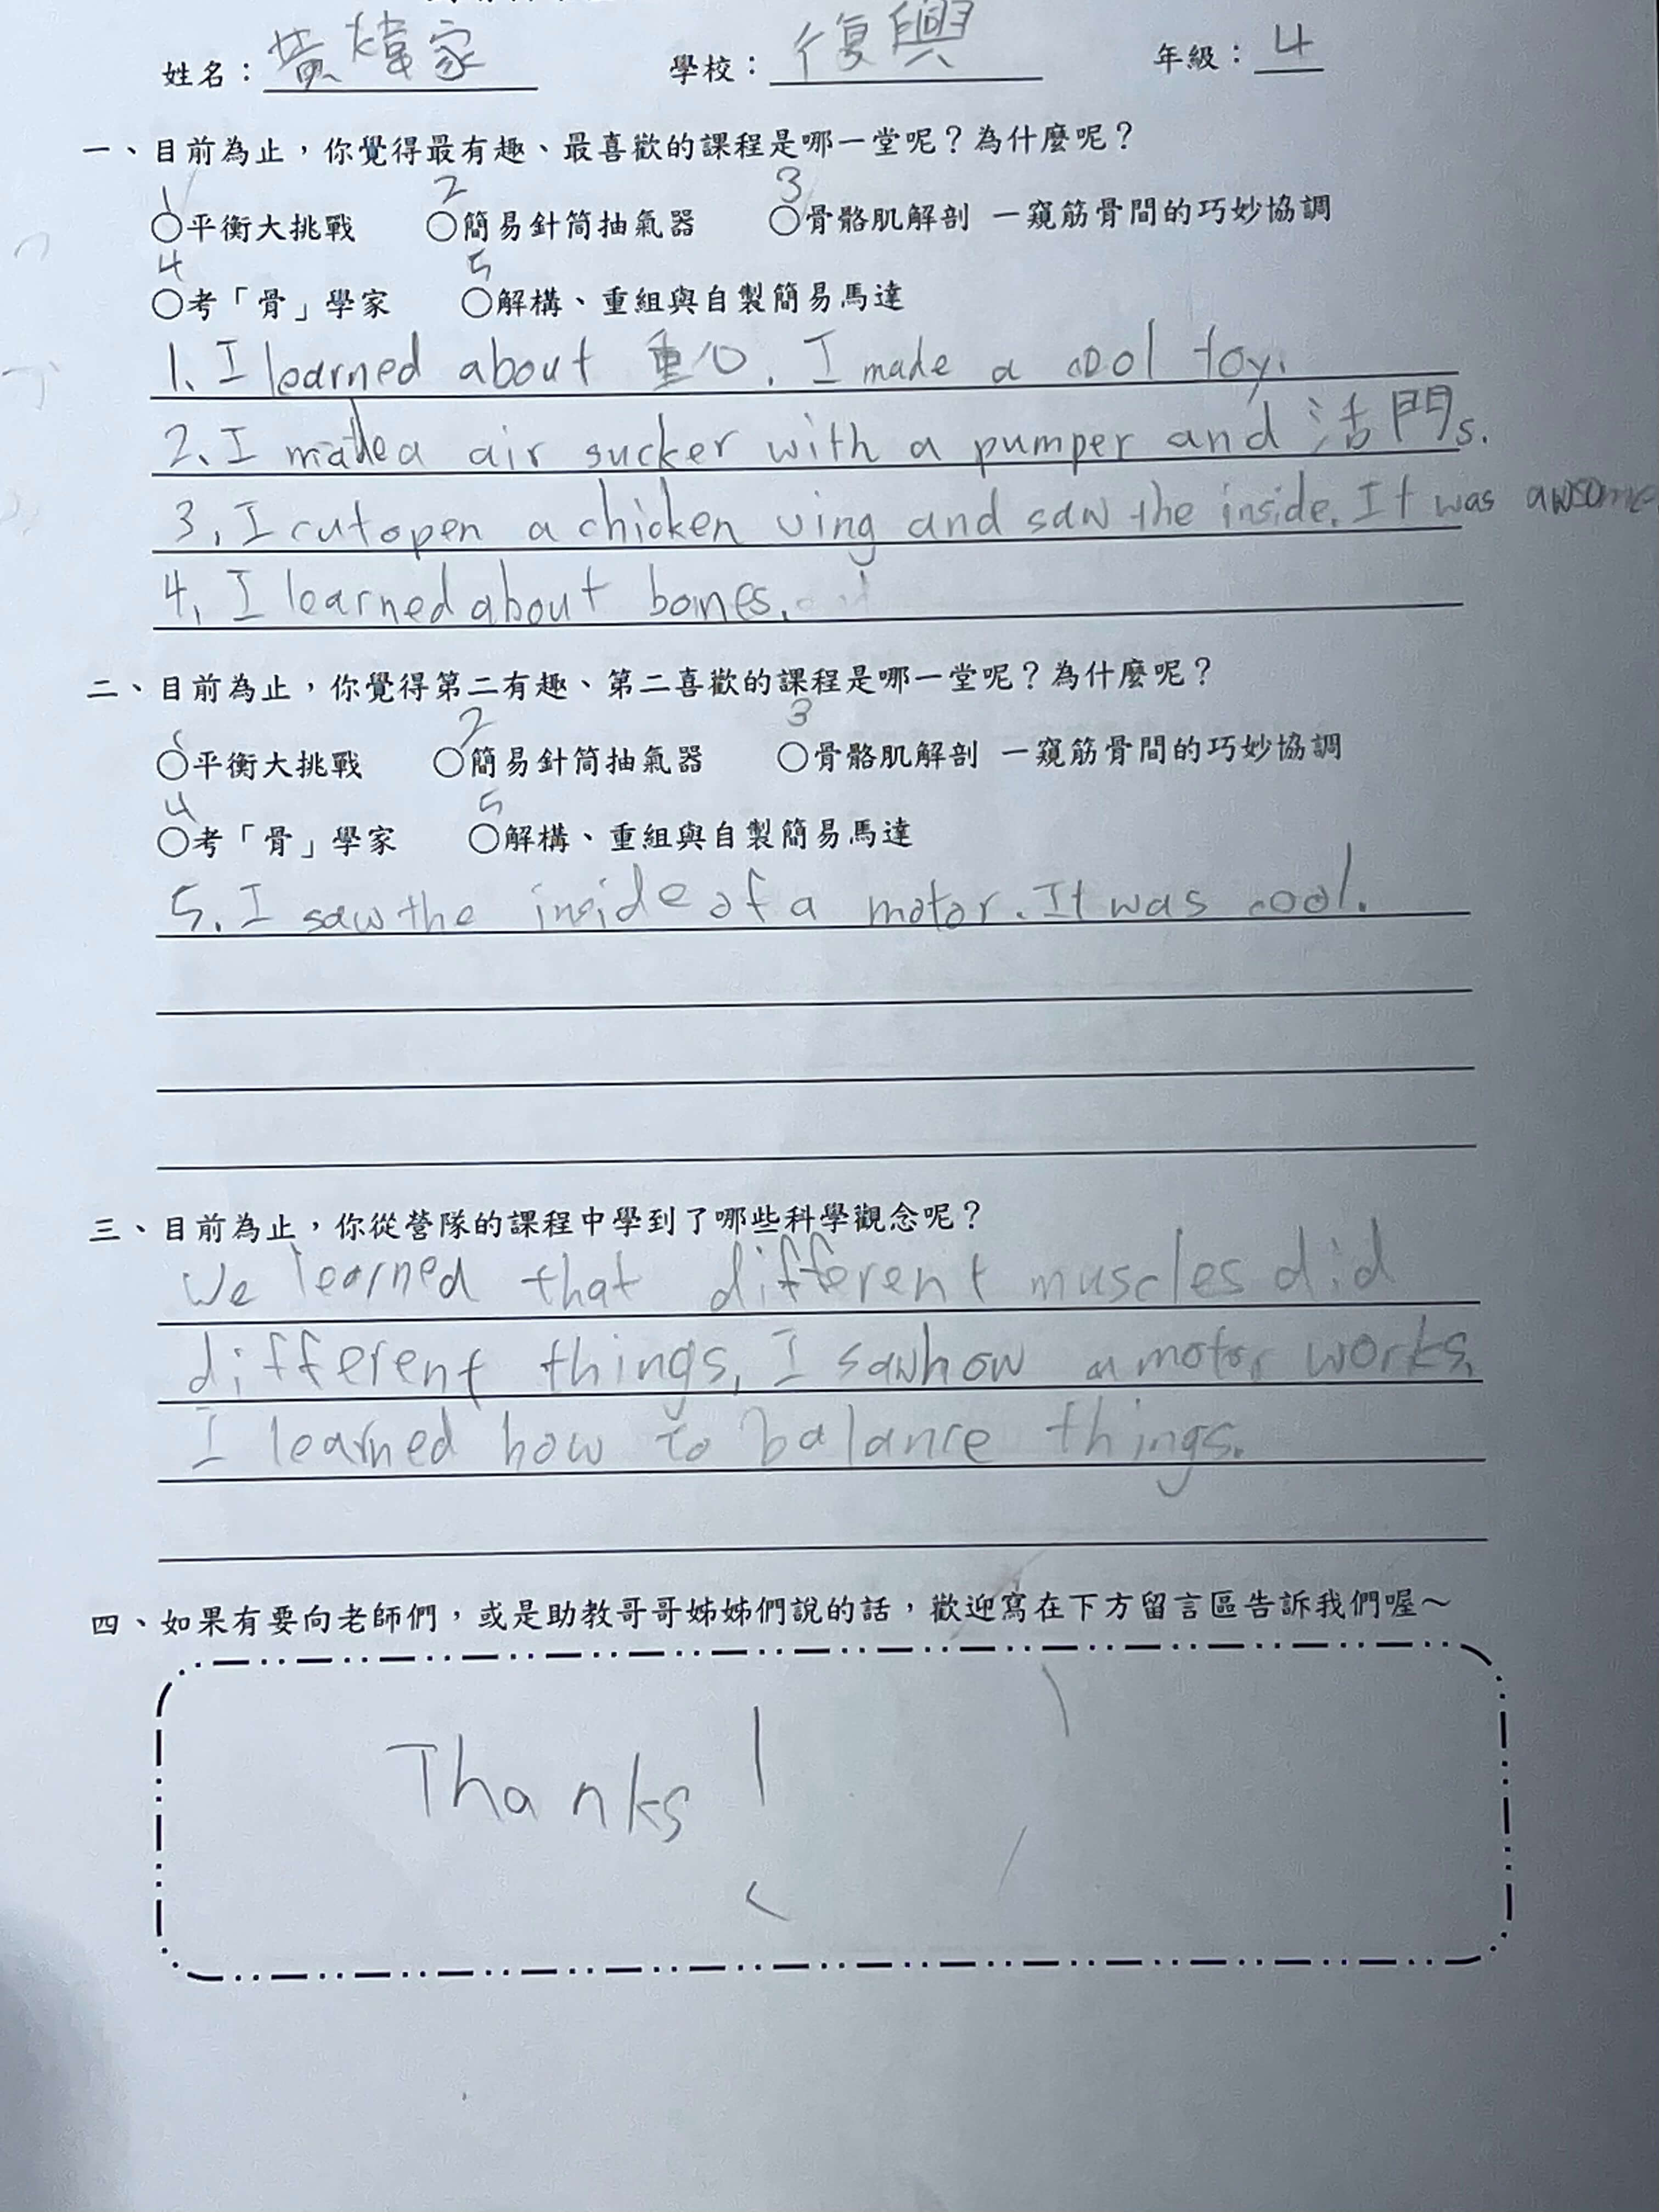 姓名：黃煒家 學校：復興 年級：4
一、目前為止，你覺得最有趣、最喜歡的課程是哪一堂呢？為什麼呢？
1 2 3
○平衡大挑戰 ○簡易針筒抽氣器 ○骨骼肌解剖 一窺筋骨間的巧妙協調
4 5
○考「骨」學家 ○解構、重組與自製簡易馬達
1. I learned about 重心. I made a cool toy.
2. I made a air sucker with a pumper and 活門s.
3. I cut open a chicken wing and saw the inside. It was awsome
4. I learned about bones.
二、目前為止，你覺得第二有趣、第二喜歡的課程是哪一堂呢？為什麼呢？
1 2 3
○平衡大挑戰 ○簡易針筒抽氣器 ○骨骼肌解剖 一窺筋骨間的巧妙協調
4 5
○考「骨」學家 ○解構、重組與自製簡易馬達
5. I saw the inside of a motor. It was cool.
三、目前為止，你從營隊的課程中學到了哪些科學觀念呢？
We learned that different muscles did
different things, I saw how a motor works.
I learned how to balance things.
四、如果有要向老師們，或是助教哥哥姊姊們說的話，歡迎寫在下方留言區告訴我們喔～
Thanks!